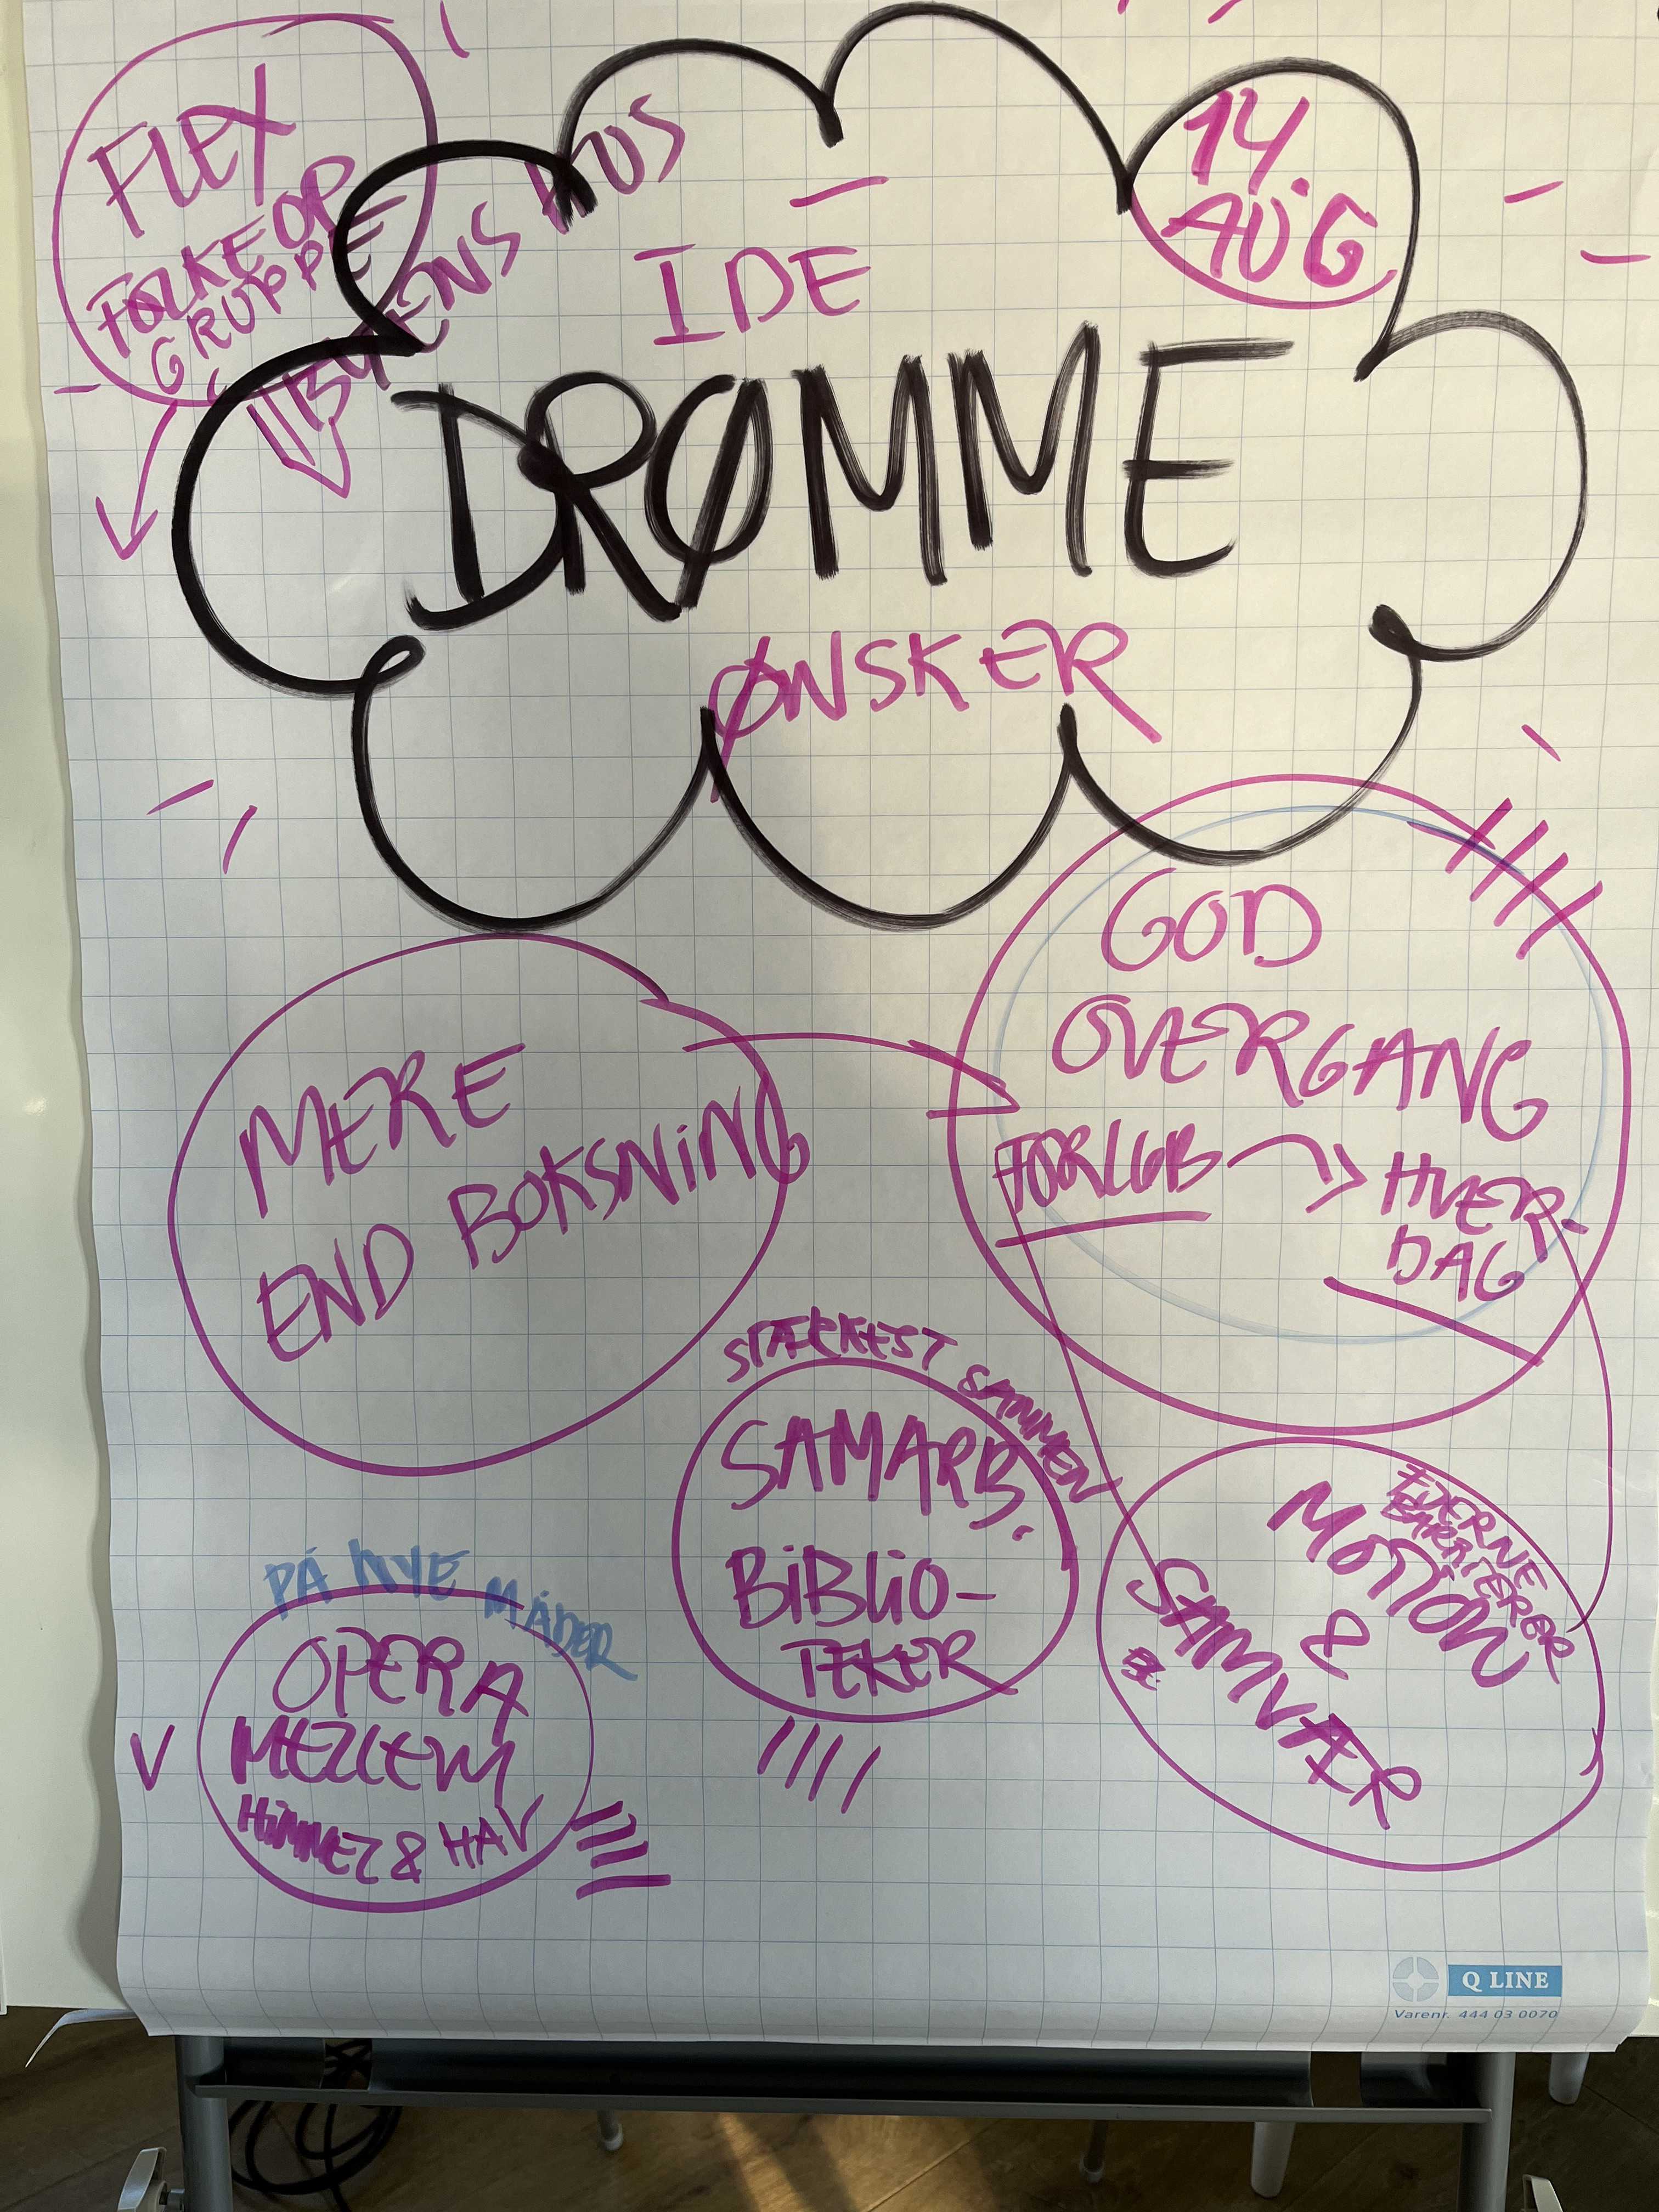 FLEX
FOLKEOP
GRUPPE
BYENS HUS
14.
AUG
IDE
DRØMME
ØNSKER
GOD
OVERGANG
FORLØB → HVER-
DAG
MERE
END BOKSNING
STÆRKEST SAMMEN
SAMARB.
BIBLIO-
TEKER
FJERNE
BARRIERER
MOTION
&
SAMVÆR
PÅ NYE MÅDER
OPERA
MELLEM
HIMMEL & HAV
Q LINE
Varenr. 444 03 0070